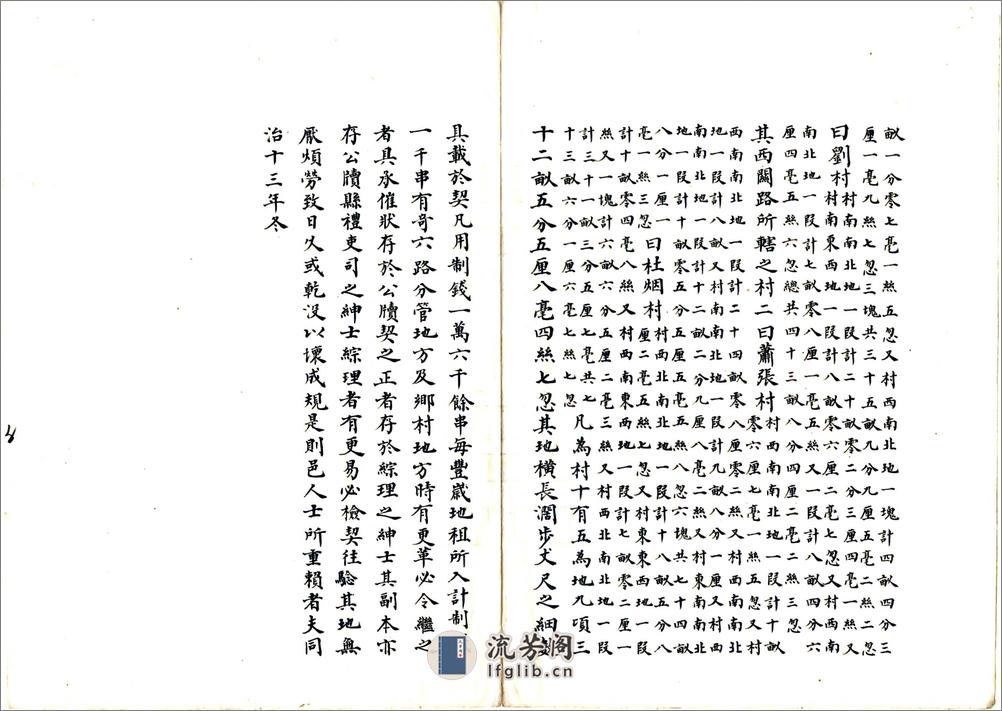 畝一分零七毫一絲五忽又村西南北地一塊計四畝四分三
厘一毫九絲七忽三塊共三十五畝九分九厘五毫二絲二忽
曰劉村村南南北地一段計二十畝零二分三厘四毫一絲又
村南東西地一段計八畝零二厘二毫七忽又村西南
南北地一段計七畝零八厘一毫五絲又一段計八畝四分六
厘四毫五絲六忽總共四十三畝八分四厘二毫二絲三忽
其西關路所轄之村二曰蕭張村村西南南北地一段計十畝
零六厘七毫一絲五忽又村
西南南北地一段計二十四畝零八厘零二絲又村西南南北
地一段計八畝又村南南北地一段計九畝八分一厘又村西
南南北地一段計十二畝二分九厘八毫二絲又村東南南北
地一段計十畝零五分五厘五毫五絲八忽六塊共七十四畝
八分一厘一
毫一絲三忽
曰杜烟村村西南北地一段計十八畝五分八
厘二毫五絲七忽又村東東西地一段
計十畝零四毫八絲又村西南東西地一段計七畝零二厘一
絲又一塊計六畝六分五厘二毫三絲又村西北南北地一段
計三十一畝三分五厘七毫共七
十三畝六分一厘六毫七絲七忽
凡為村十有五為地九頃三
十二畝五分五厘八毫四絲七忽其地橫長濶步丈尺之細數
具載於契凡用制錢一萬六千餘串每豐歲地租所入計制
一千串有奇六路分管地方及鄉村地方時有更革必令繼之
者具承催狀存於公牘契之正者存於綜理之紳士其副本亦
存公牘縣禮吏司之紳士綜理者有更易必檢契往驗其地無
厭煩勞致日久或乾沒以壞成規是則邑人士所重賴者夫同
治十三年冬
流芳阁
lfglib.cn